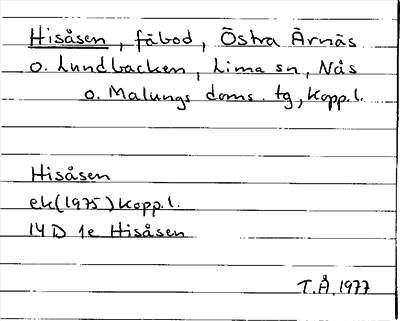 Hisåsen, fäbod, Östra Ärnäs
o. Lundbacken, Lima sn, Nås
o. Malungs doms. tg, Kopp.l.
Hisåsen
ek(1975)Kopp.l.
14D 1e Hisåsen
T.Å. 1977